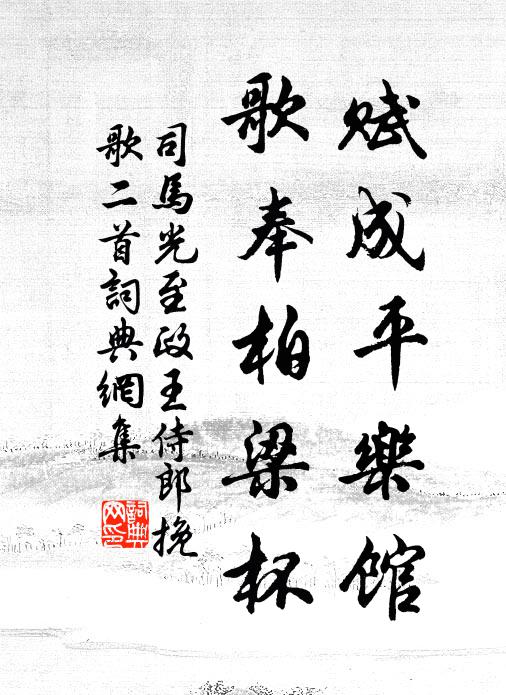 賦成平樂館
歌奉柏梁杯
司馬光至政王侍郎挽
歌二首詞典網集
詞典網印